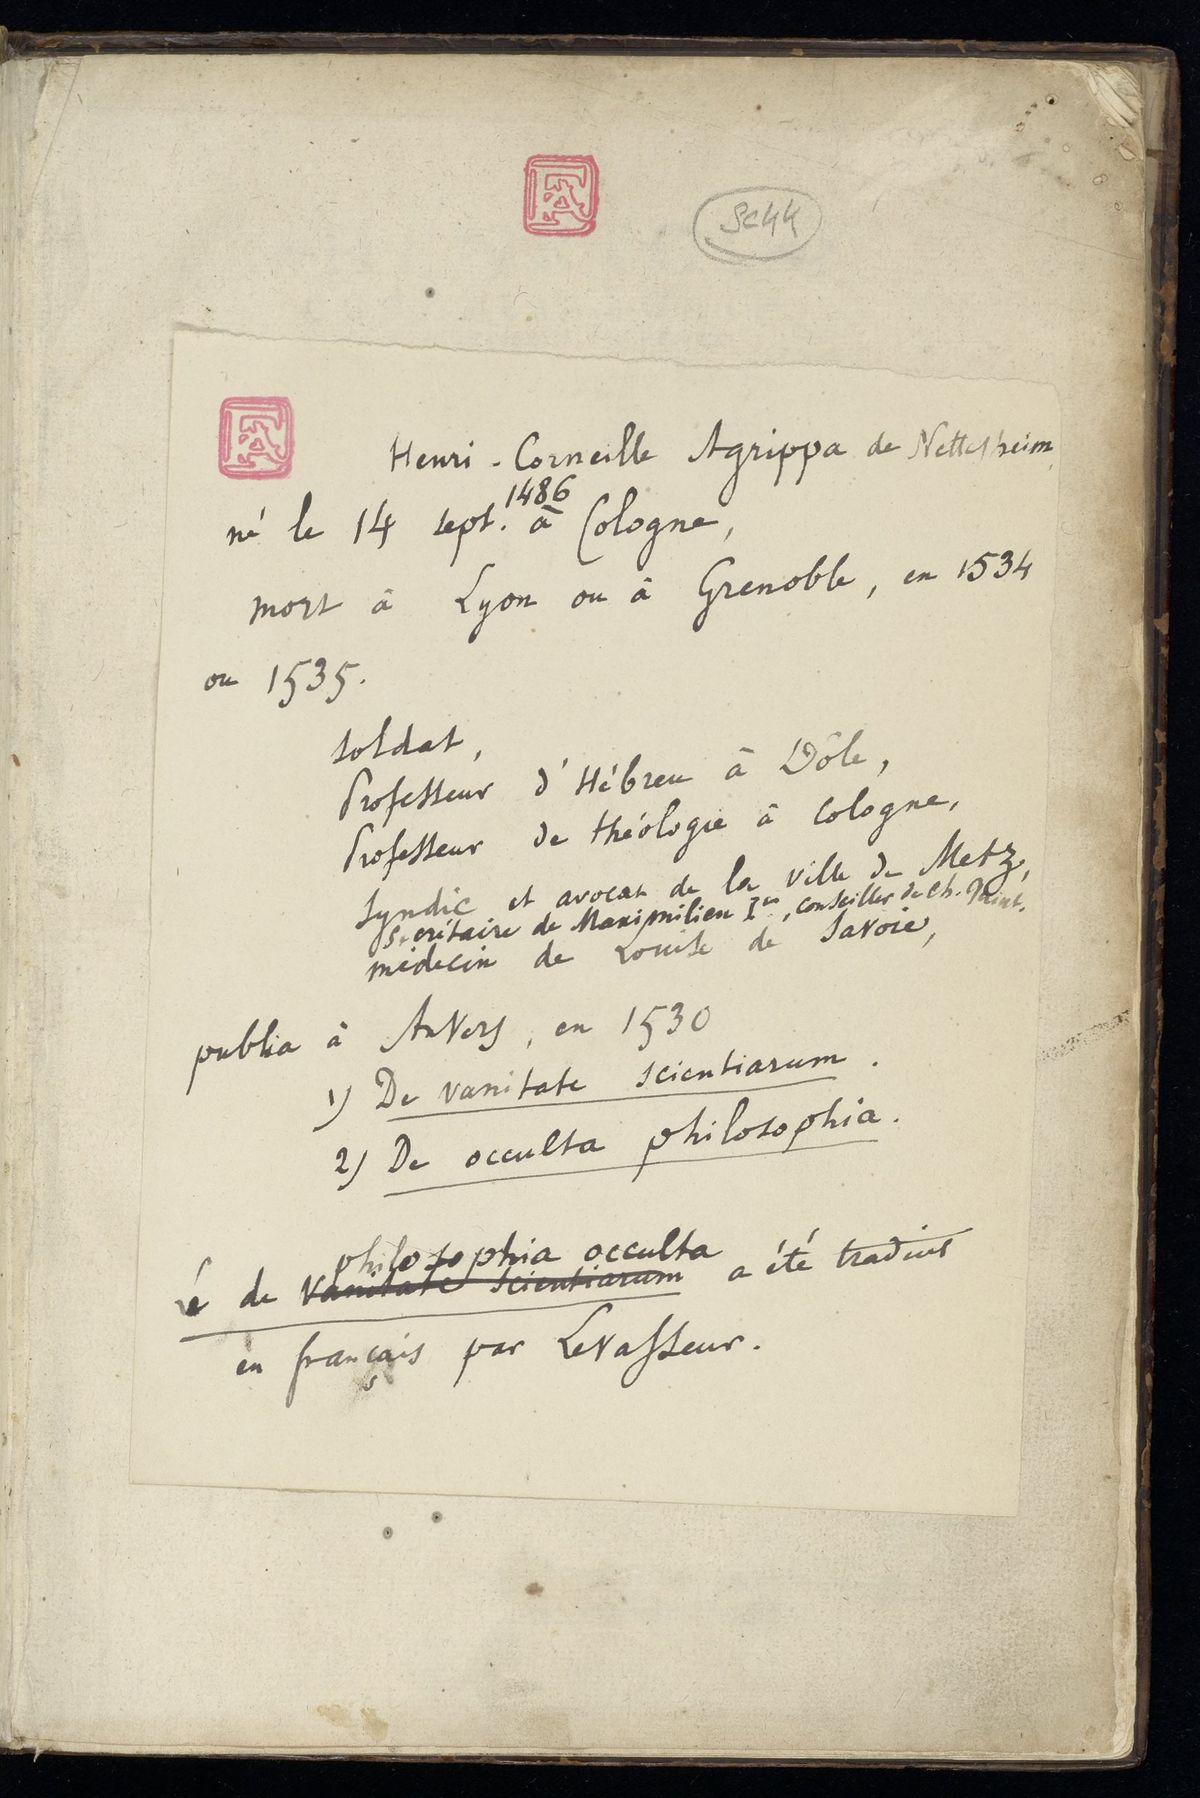 Sc44
Henri-Corneille Agrippa de Nettesheim
né le 14 sept. 1486 à Cologne,
mort à Lyon ou à Grenoble, en 1534
ou 1535.
soldat,
Professeur d'Hébreu à Dôle,
Professeur de théologie à Cologne,
syndic et avocat de la ville de Metz,
secrétaire de Maximilien Ier, conseiller de Ch. Quint,
médecin de Louise de Savoie,
publia à Anvers, en 1530
1) De vanitate scientiarum.
2) De occulta philosophia.
philosophia occulta
Le de vanitate scientiarum a été traduit
en français par Levasseur.